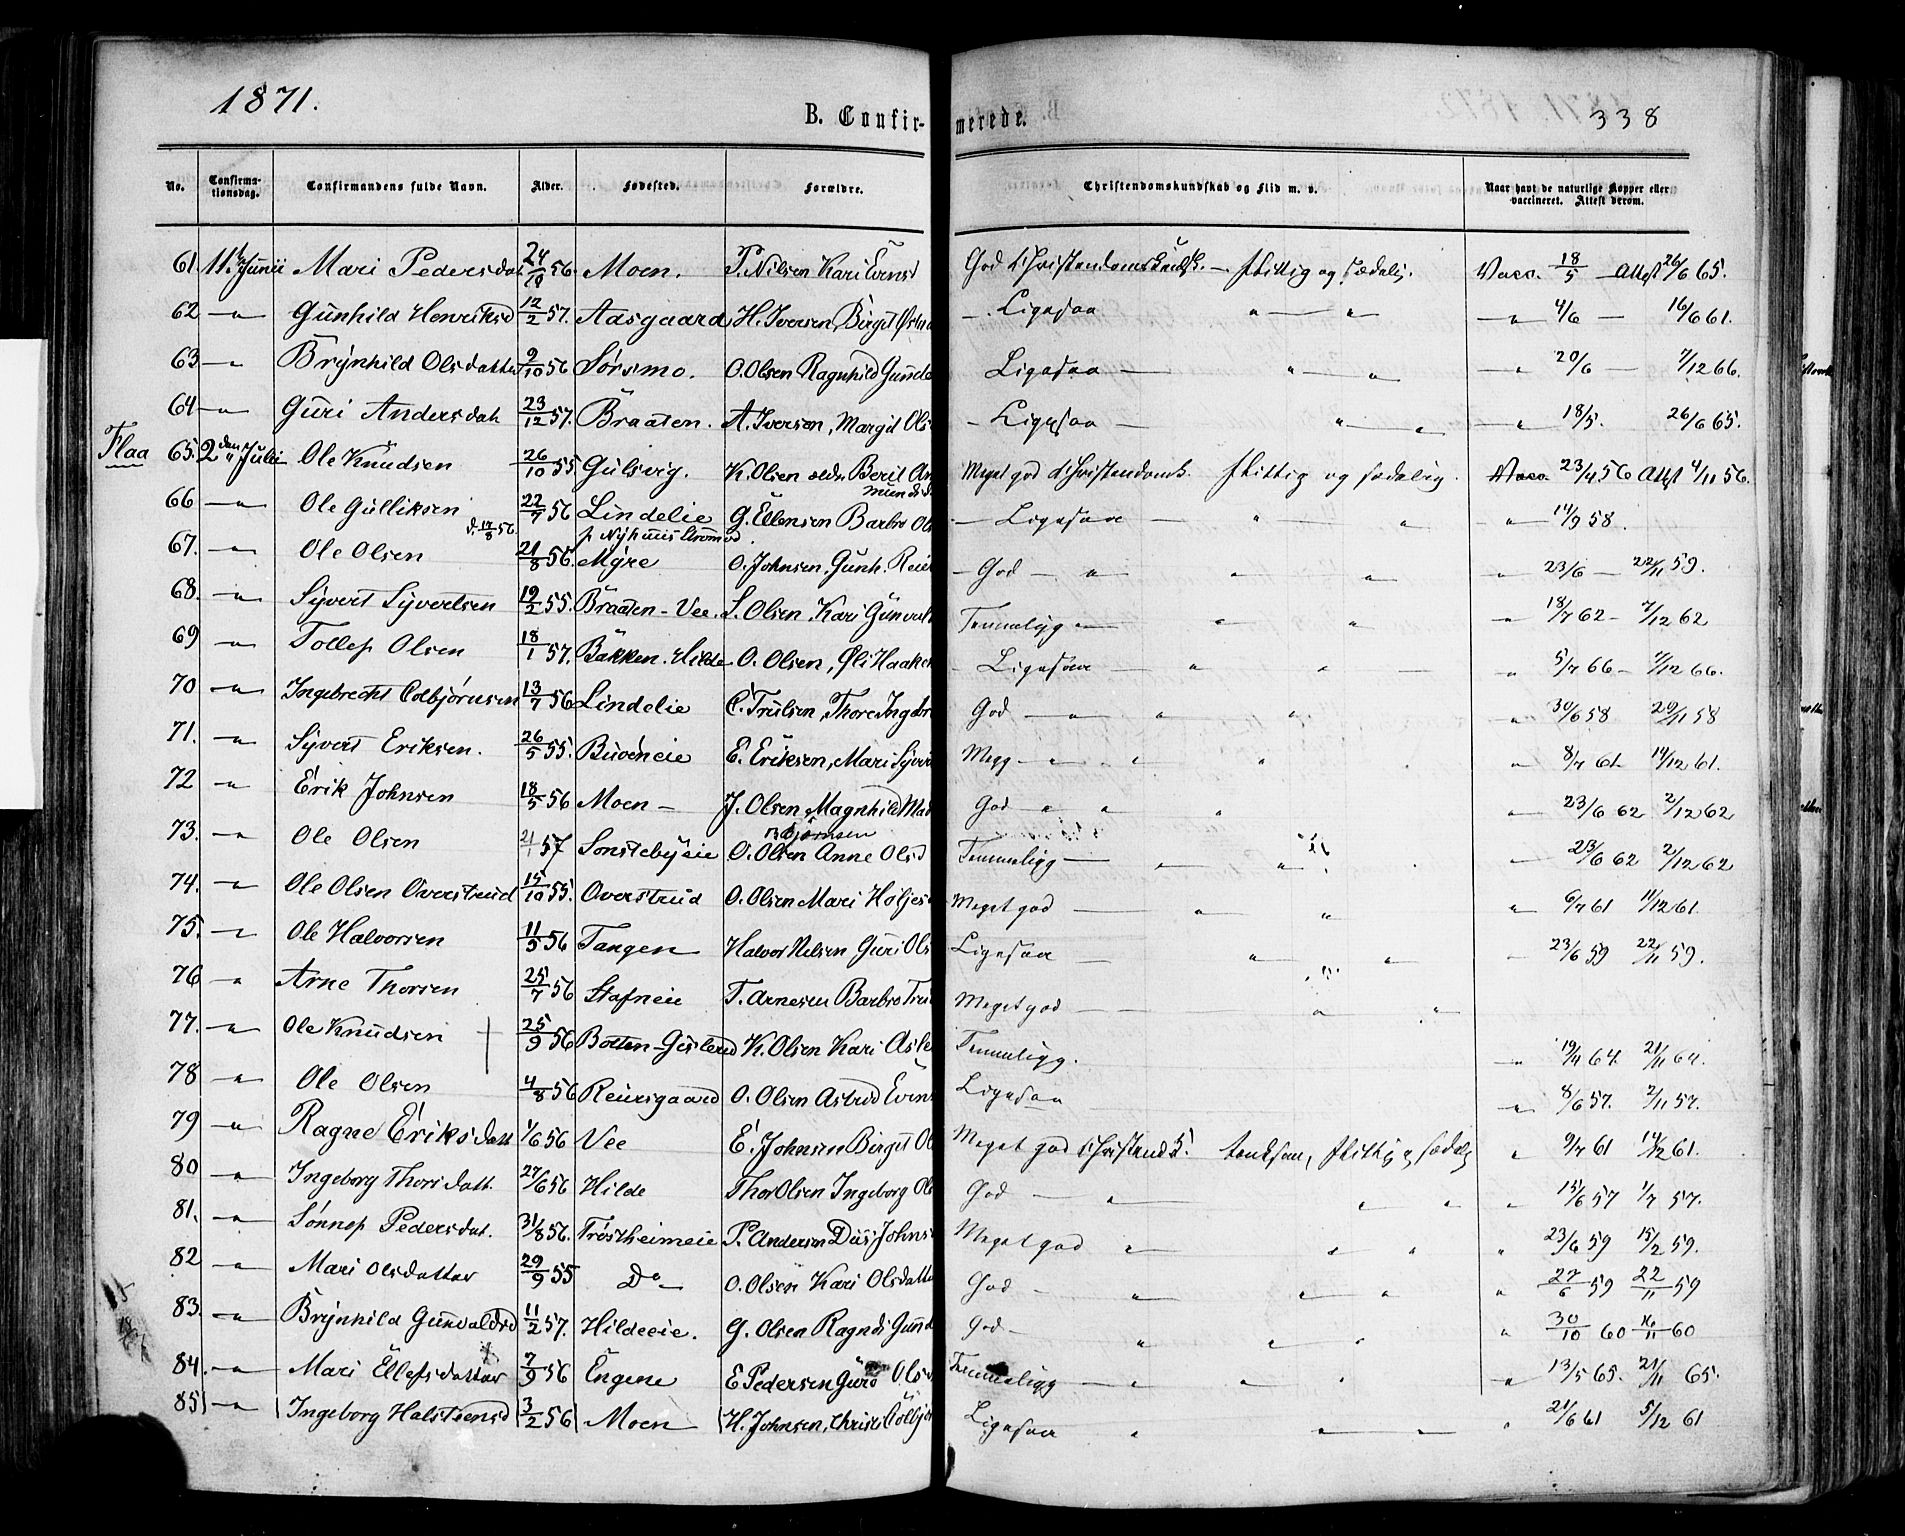 1871.
B. Confirmerede.
338
No. Confirmationsdag. Confirmandens fulde Navn. Alder. Fødested. Forældre. Christendomskundskab og Flid m. v. Naar havt de naturlige Kopper eller vaccineret. Attest derom.
61. 11te Junii Mari Pedersdat 24/10 56. Moen. P. Nilsen Kari Evensd God Christendomskundsk. — flittig og sædelig. Vacc. 18/5 — Attest 26/6 65.
62 —"— Gunhild Henriksd 12/2 57. Aasgaard H. Iversen, Birgit —. Ligesaa " — " —"— 4/6 — 16/6 61.
63 —"— Brynhild Olsdatter 9/10 56 Sørsmo. O. Olsen Ragnhild Gunde Ligesaa — " — " —"— 20/6 — 7/12 66.
64 —"— Guri Andersdatt 23/12 57. Braaten. A. Iversen, Margit Ols — Ligesaa — " — " —"— 18/5. 26/6 65.
Flaa 65. 2den Julii Ole Knudsen 26/10 55 Gulsvig. K. Olsen Beril Meget god Christendomsk. flittig og sædelig. Vacc. 23/4 56 Attest 4/11 56.
66 —"— Ole Gulliksen 22/7 56 Lindelie G. Ellensen Barbro Ols — Ligesaa — " — " " 14/9 58.
67. —"— Ole Olsen 21/8 56. Myre O. Johnsen, Gunh. Reier — God — " — " — " " 23/6 — 22/11 59.
68. —"— Syvert Syvertsen 19/2 55. Braaten - Vee. S. Olsen, Kari Gunvals Temmeligg — " — " —"— 18/7 62 — 7/12 62
69 —"— Tollef Olsen 18/1 57. Bakken. Hilde O. Olsen, Øli Haaken — Ligesaa — " — " " 5/7 66 — 7/12 66.
70 —"— Ingebrecht Colbjørnsen 13/7 56 Lindelie C. Trulsen, Thore Ingebr God — " — " — " " 30/6 58 20/11 58
71. —"— Syvert Eriksen. 26/5 55. Buvöneie E. Eriksen, Mari Syver Megg — " — " " 8/7 61 14/12 61.
72 —"— Erik Johnsen 18/5 56 Moen — J. Olsen Magnhild Mad God " " —"— 23/6 62 2/12 62
73. —"— Ole Olsen 21/1 57 Sonstebyeie O. Olsen Bjørnsen Anne Olsd Temmeligg — " — " —"— 23/6 62 2/12 62
74. —"— Ole Olsen Overstrud 15/10 55. Overstrud O. Olsen Mari Holjes Meget god — " — " " 6/7 61 11/12 61.
75. —"— Ole Halvorsen 11/5 56 Tangen Halvor Nilsen Guri Ols Ligesaa — " — " " 23/6 59 22/11 59.
76 " Arne Thorsen 25/7 56 Stafneie T. Arnesen Barbro Tru Meget god — " — "
77. —"— Ole Knudsen 25/9 56 Botten - Gislerud K. Olsen Kari Asle Temmeligg. —"— 19/11 64. 21/11 64.
78 —"— Ole Olsen 4/8 56 Reiersgaard O. Olsen Astrid Evens Ligesaa —"— 8/6 57. 2/11 57.
79 —"— Ragne Eriksdatt 1/6 56 Vee E. Johnsen Birgit Ols Meget god Christendsk. tænksom, flittig og sædelig " 9/7 61 14/12 61.
80 —"— Ingeborg Thorsdatt. 27/6 56 Hilde Thor Olsen Ingeborg Ols God — " — " " " 15/6 57 1/7 57.
81. —"— Sønnøp Pedersdat. 31/8 56. Trøstheimeie P. Andersen Dus Johns Meget god " — " " " 23/6 59 15/2 59.
82 —"— Mari Olsdatter 29/9 55 Do — O. Olsen Kari Olsdatte God — " — " " " 27/6 59 22/11 59
83. —"— Brynhild Gunvaldsd 11/2 57. Hildeeie. G. Olsen Ragndi Gund God — " — " " " 30/10 60 16/11 60
84. —"— Mari Ellefsdatter 7/9 56 Engene E. Pedersen Guro Ols Temmeligg — " — " —"— 13/5 65. 21/11 65.
85 —"— Ingeborg Halstensd 3/2 56 Moen H. Johnsen, Christi Colbjør Ligesaa " — " " 21/6 61 5/12 61